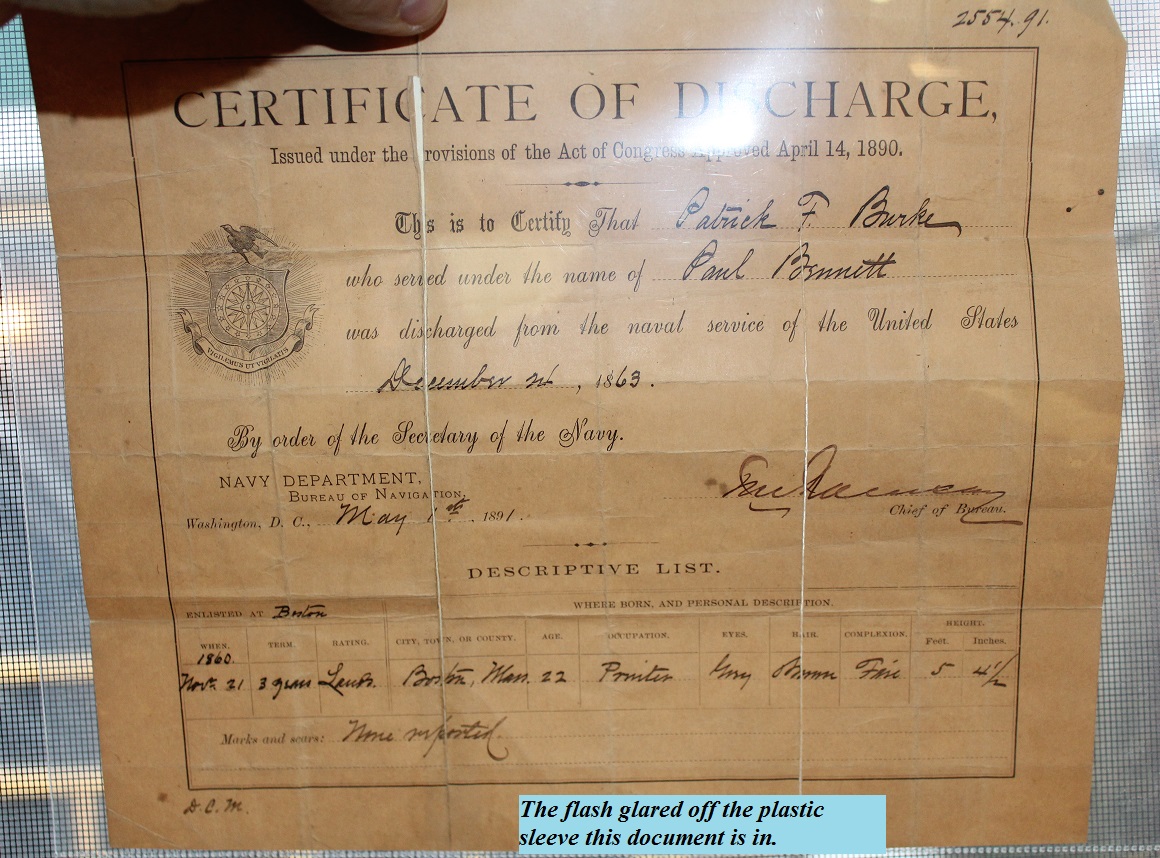 2554.91.
CERTIFICATE OF DISCHARGE,
Issued under the provisions of the Act of Congress Approved April 14, 1890.
This is to Certify That Patrick F Burke
who served under the name of Paul Bennett
was discharged from the naval service of the United States
December 24, 1863.
VIGILEMUS UT VIGILATIS
By order of the Secretary of the Navy.
NAVY DEPARTMENT,
BUREAU OF NAVIGATION,
Washington, D. C., May 1st, 1891.
Chief of Bureau.
DESCRIPTIVE LIST.
ENLISTED AT Boston
WHERE BORN, AND PERSONAL DESCRIPTION.
WHEN. TERM. RATING. CITY, TOWN, OR COUNTY. AGE. OCCUPATION. EYES. HAIR. COMPLEXION. HEIGHT.
Feet. Inches.
1860.
Novr. 21 3 years Lands. Boston, Mass. 22 Printer Grey Brown Fair 5 4 1/2
Marks and scars: None reported.
D. C. M.
The flash glared off the plastic
sleeve this document is in.